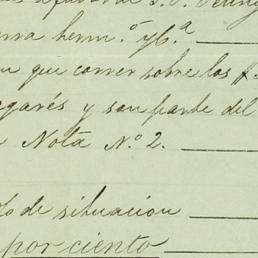 erra herm.º y C.ª
que correr sobre los
egarés y son parte del
Nota N.º 2.
de situacion
por ciento